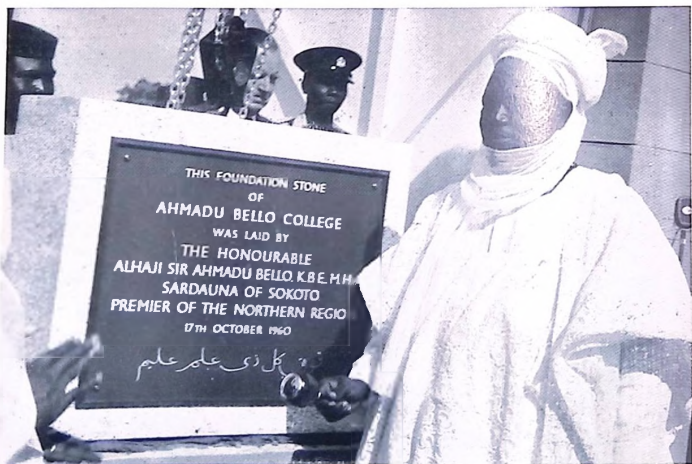 THIS FOUNDATION STONE
OF
AHMADU BELLO COLLEGE
WAS LAID BY
THE HONOURABLE
ALHAJI SIR AHMADU BELLO, K.B.E. M.H
SARDAUNA OF SOKOTO
PREMIER OF THE NORTHERN REGIO
17TH OCTOBER 1960
كل ذى علم عليم